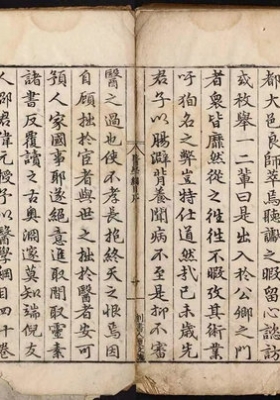 都大邑良師萃焉聽讞之暇留心諮訪
或枚舉一二輩曰是出入於公卿之門
者衆皆靡然從之徃徃不暇攷其術業
吁狥名之弊豈特仕道然哉已未歲先
君子以腸澼背養關病不至是抑不審
醫之過也使不孝長抱終天之恨焉因
自顧拙於宦者與世之拙於醫者安可
預人家國事耶遂絕意進取閒取靈素
諸書反覆讀之古奧淵邃莫知端倪友
人邵君偉元授予以醫學綱目四十卷